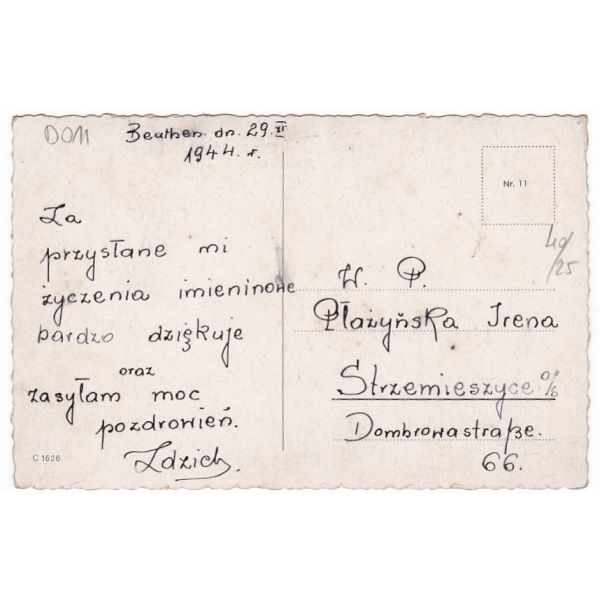 DO11
Beuthen. dn. 29. XI
1944. r.
Za
przysłane mi
życzenia imieninowe
bardzo dziękuje
oraz
zasyłam moc
pozdrowień.
Zdzich
C 1626
Nr. 11
40/25
W. P.
Płażyńska Irena
Strzemieszyce O/S
Dombrowastraße.
66.